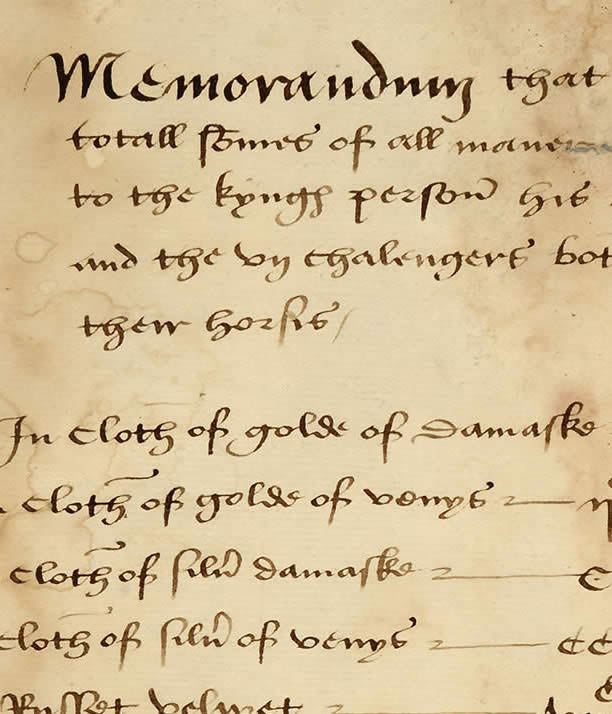 Memorandum that
totall somes of all maner
to the kyngs person his
and the vij chalengers bot
their horsis/
In Cloth of golde of damaske
Cloth of golde of venys
Cloth of silu damaske C
Cloth of silu of venys CC
Russet velwet